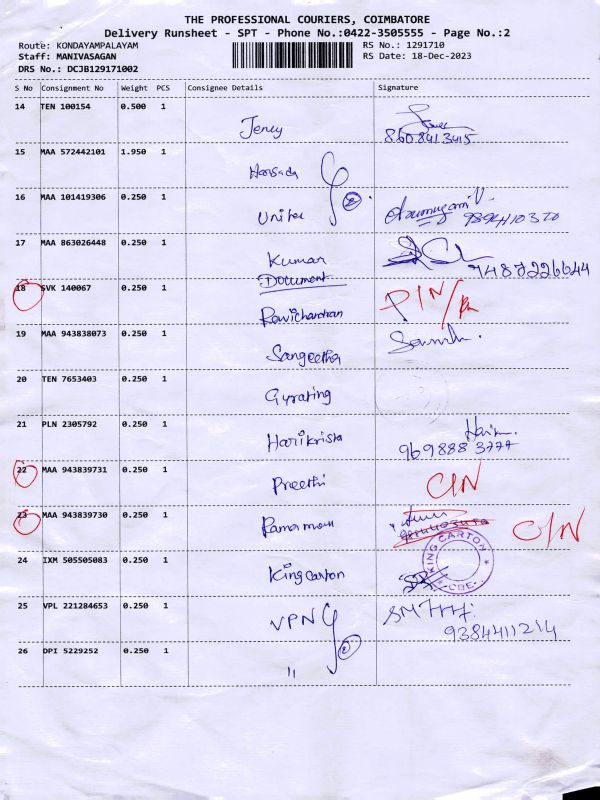 THE PROFESSIONAL COURIERS, COIMBATORE
Delivery Runsheet - SPT - Phone No.:0422-3505555 - Page No.:2
Route: KONDAYAMPALAYAM RS No.: 1291710
Staff: MANIVASAGAN RS Date: 18-Dec-2023
DRS No.: DCJB129171002
S No Consignment No Weight PCS Consignee Details Signature
14 TEN 100154 0.500 1
Jency
8608413415
15 MAA 572442101 1.950 1
16 MAA 101419306 0.250 1
Unitec
Arumugam V
17 MAA 863026448 0.250 1
Kumar
7487226644
Document
18 SVK 140067 0.250 1
Ravichandran
P/N/
19 MAA 943838073 0.250 1
Sangeetha
20 TEN 7653403 0.250 1
Gyrating
21 PLN 2305792 0.250 1
Harikrista
969888 3777
22 MAA 943839731 0.250 1
Preethi
C/N
23 MAA 943839730 0.250 1
C/N
24 IXM 505505083 0.250 1
King carton
KING CARTON
CBE.
25 VPL 221284653 0.250 1
VPN
9384411214
26 DPI 5229252 0.250 1
"